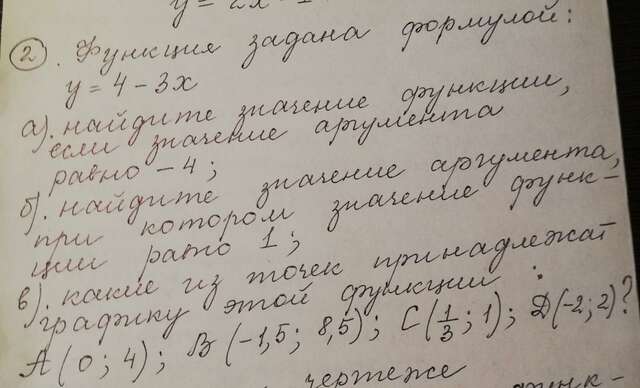 y = 2x - 1
2. Функция задана формулой:
y = 4 - 3x
а). найдите значение функции,
если значение аргумента
равно - 4;
б). найдите значение аргумента,
при котором значение функ-
ции равно 1;
в). какие из точек принадлежат
графику этой функции:
A(0; 4); B(-1,5; 8,5); C(1/3; 1); D(-2; 2)?
чертеже функ-